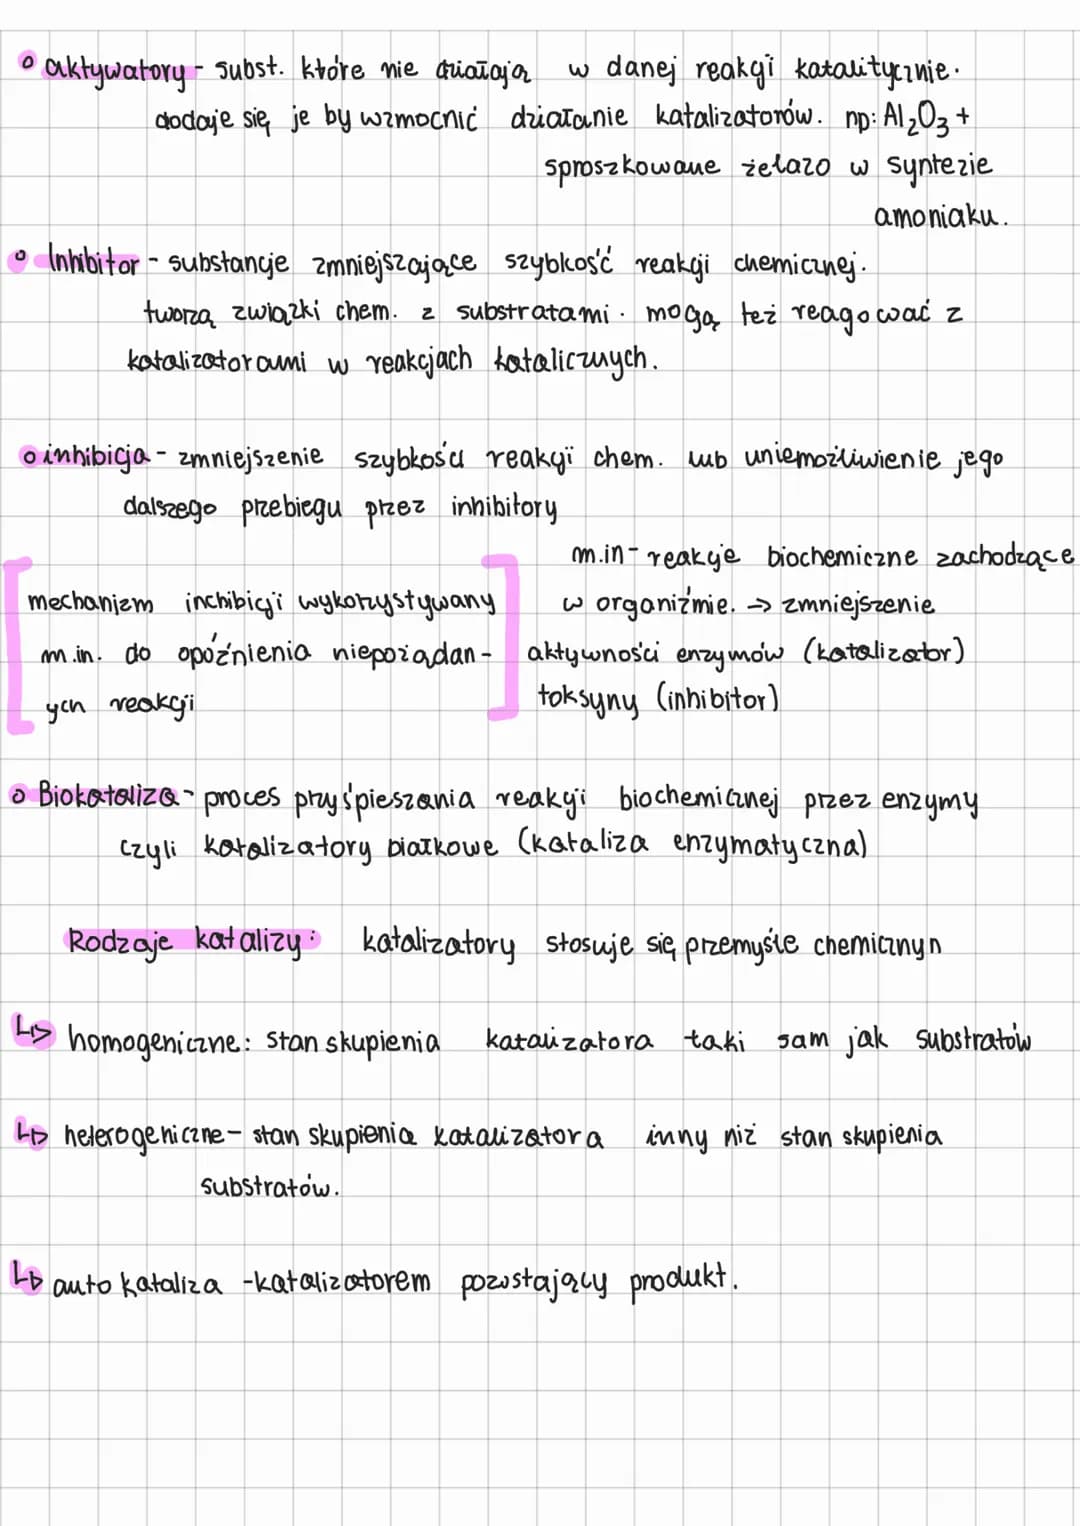 aktywatory - subst. które nie działają w danej reakcji katalitycznie.
dodaje się je by wzmocnić działanie katalizatorów. np: Al₂O₃ +
sproszkowane żelazo w syntezie
amoniaku.
Inhibitor - substancje zmniejszające szybkość reakcji chemicznej.
tworzą związki chem. z substratami. mogą też reagować z
katalizatorami w reakcjach katalicznych.
inhibicja - zmniejszenie szybkości reakcji chem. lub uniemożliwienie jego
dalszego przebiegu przez inhibitory
m.in - reakcje biochemiczne zachodzące
mechanizm inchibicji wykorzystywany w organiźmie. → zmniejszenie
m.in. do opóźnienia niepożądan- aktywności enzymów (katalizator)
ych reakcji toksyny (inhibitor)
Biokataliza - proces przyśpieszania reakcji biochemicznej przez enzymy
czyli katalizatory białkowe (kataliza enzymatyczna)
Rodzaje katalizy: katalizatory stosuje się przemyśle chemicznyn
↳ homogeniczne: stan skupienia katalizatora taki sam jak substratów
↳ heterogeniczne - stan skupienia katalizatora inny niż stan skupienia
substratów.
↳ auto kataliza - katalizatorem pozostający produkt.